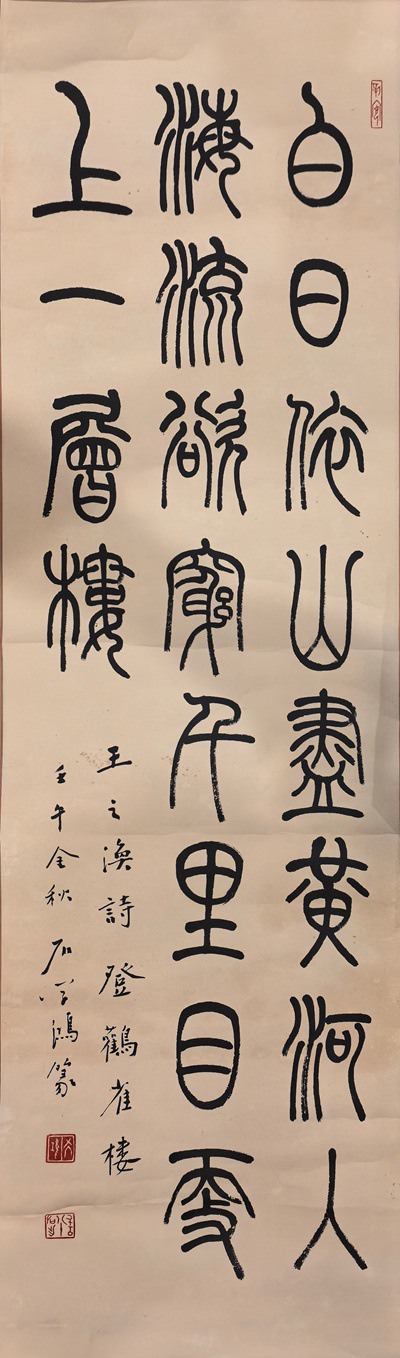 白日依山盡黃河入
海流欲窮千里目更
上一層樓
王之渙詩登鸛雀樓
壬午金秋石學鴻篆